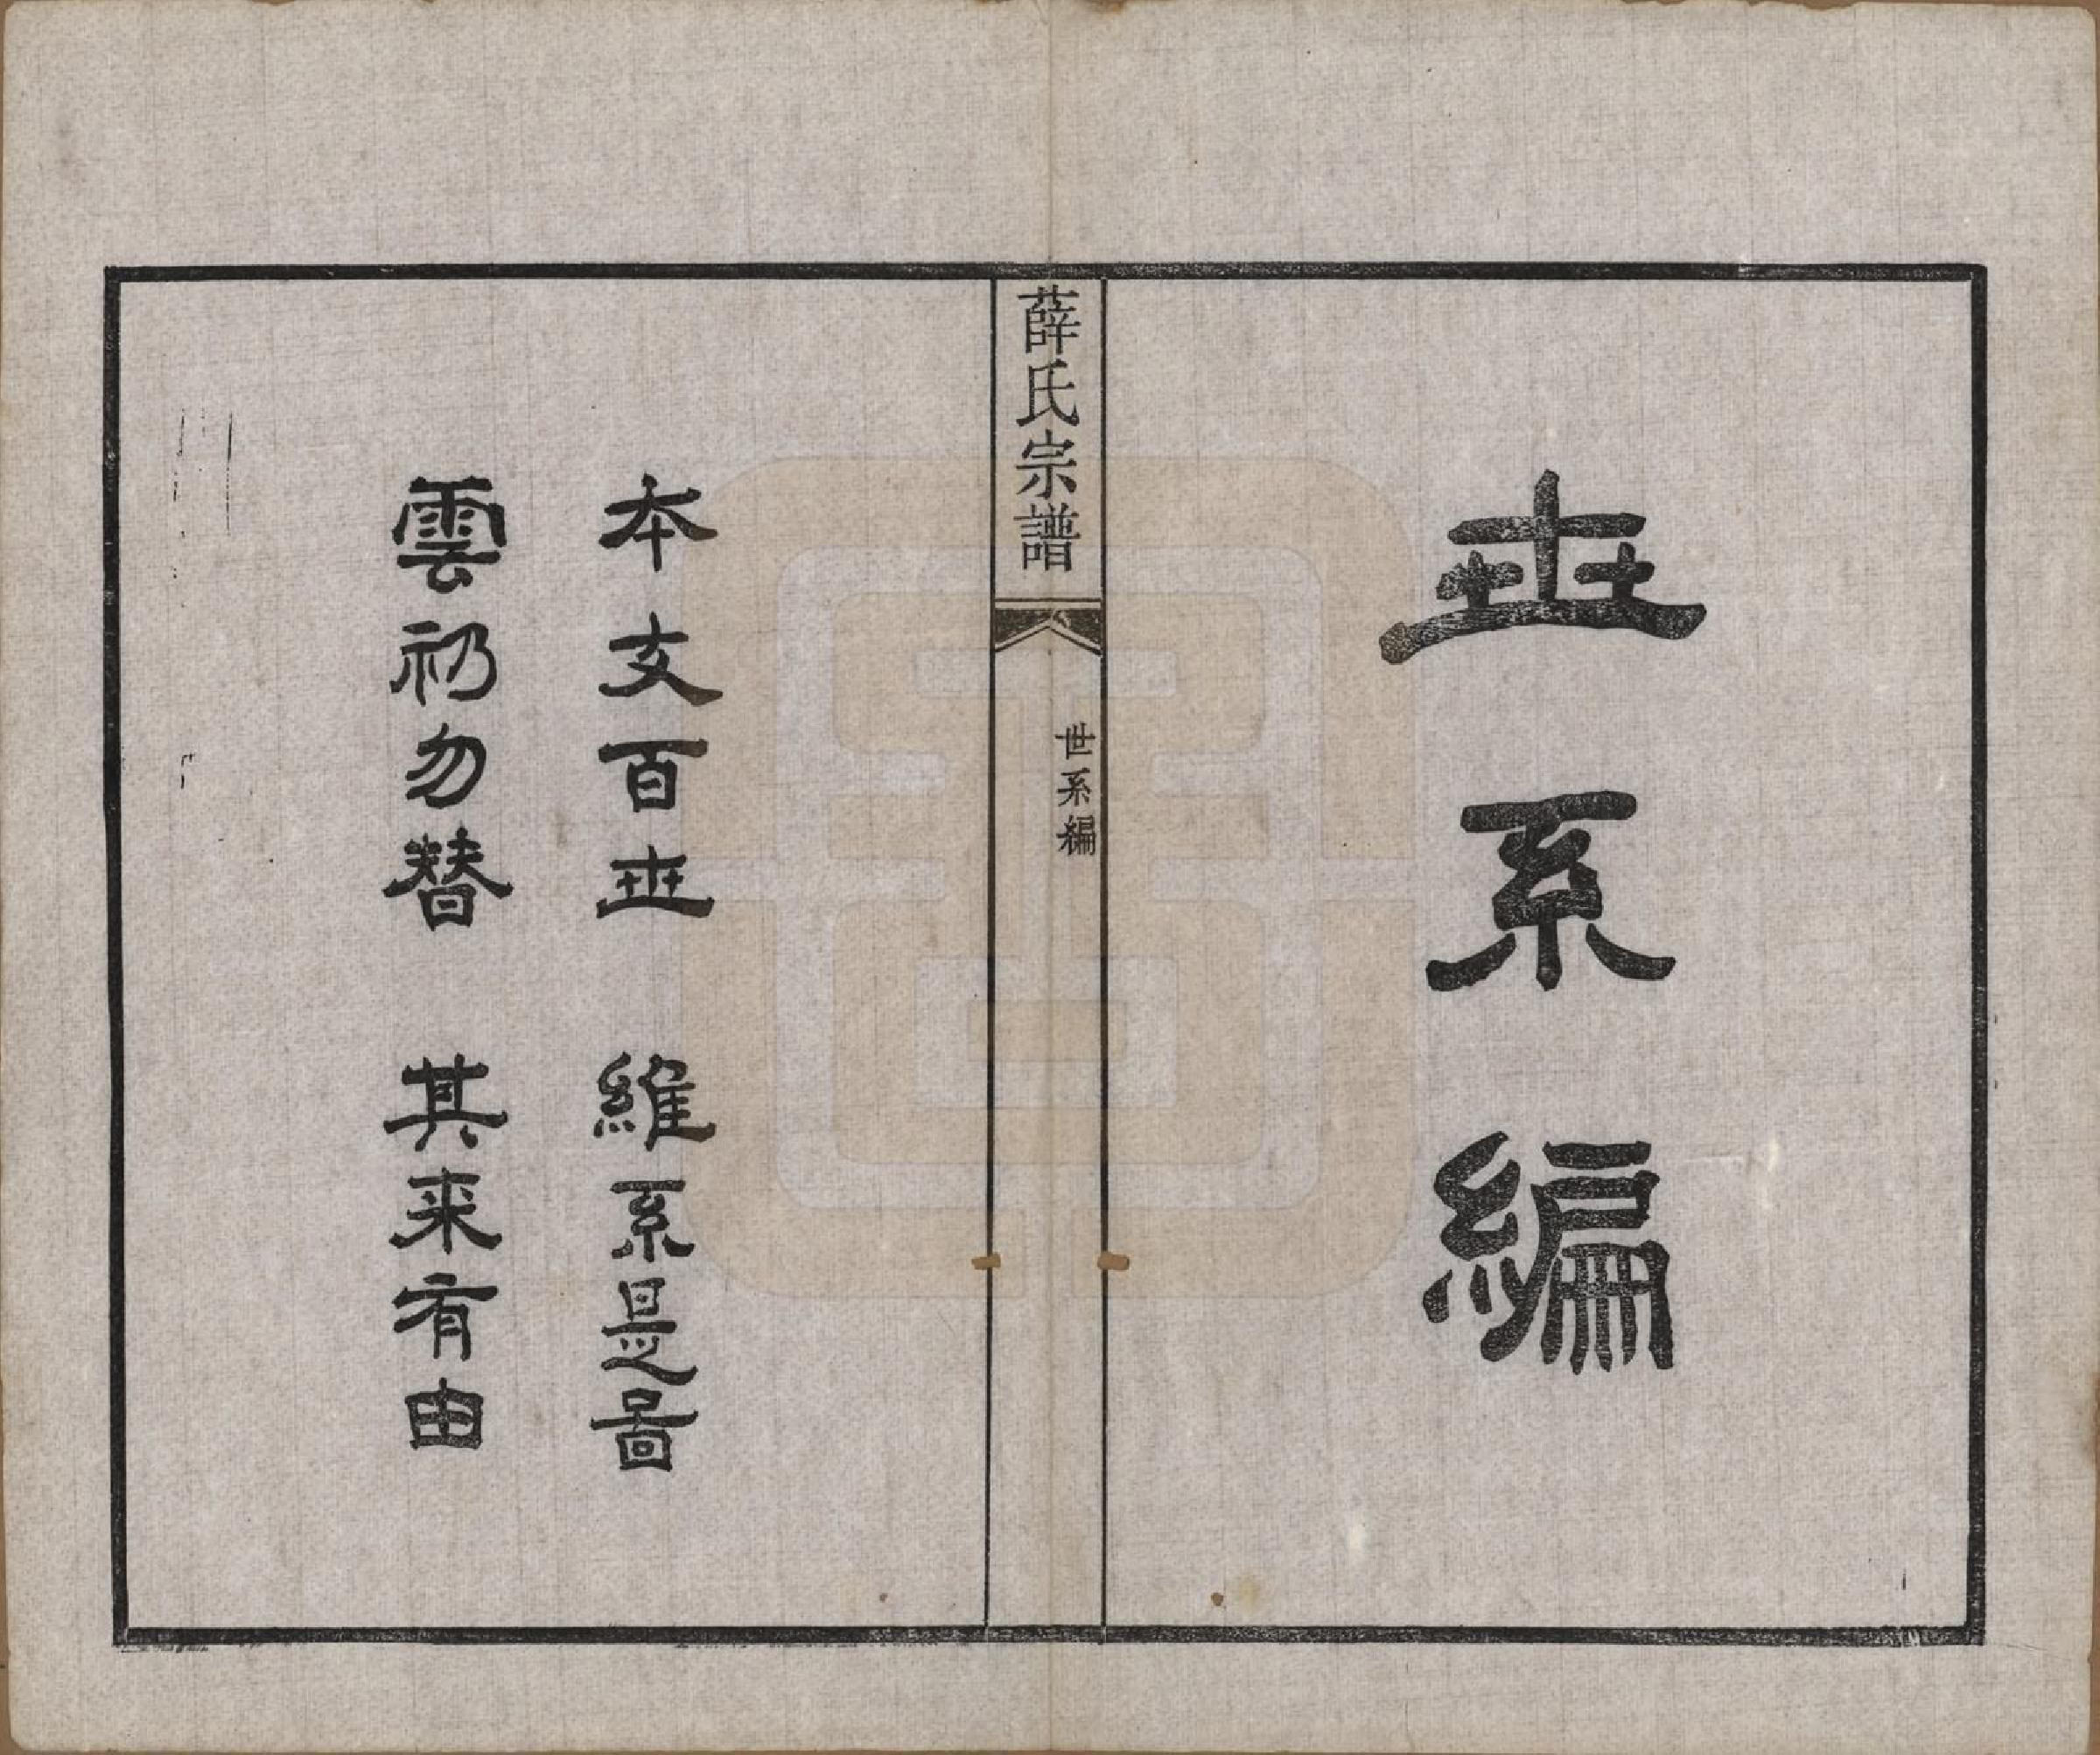 世系編
薛氏宗譜
世系編
本支百世 維系是圖
雲礽勿替 其來有由